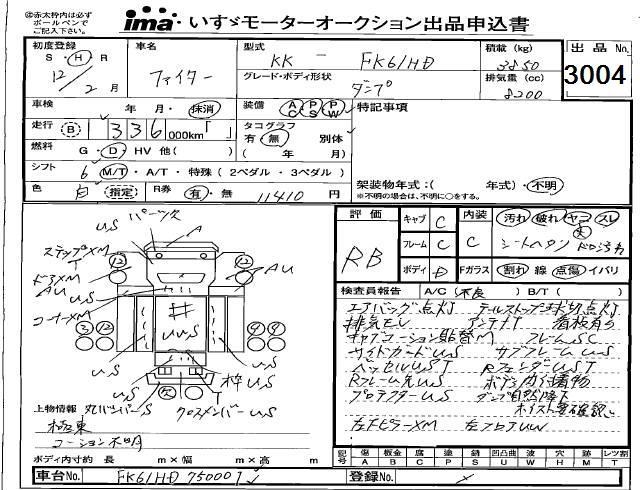 ㊟赤太枠内は必ず
ボールペンで
ご記入下さい。
ima いすゞモーターオークション出品申込書
初度登録 車名 型式 積載(kg) 出品No.
S・H・R ファイター KK - FK61HD 3850 3004
12/2月 グレード・ボディ形状 ダンプ 排気量(cc) 8200
車検 年 月・抹消 装備 AC PS PW 特記事項
走行 B 1 3 3 6 000km「 」 タコグラフ
有・無 別体
燃料 G・D・HV 他( ) ( 年 月)
シフト 6 M/T・A/T・特殊(2ペダル・3ペダル) 架装物年式:( 年式)・不明
色 白 指定 R券 有・無 11410円 ※不明の場合は、不明に○をする。
評価 キャブ C 内装 汚れ 破れ ヤコ スレ
RB フレーム C C シートヘタリ ドロ汚れ
ボディ D Fガラス 割れ 線 点傷 イバリ
検査員報告 A/C(不良) B/T( )
エアバッグ点灯 テールストップ球切点灯
排気モレ アンテナT 看板有り
キャブコーション貼替M フレームSC
サイドガードUS サブフレームUS
ベッセルUST RフェンダーUST
Rフレーム先US ボディ内付着物
プロテクターUS ダンプ自然降下
ホイスト要確認
左FピラーXM 左フロアUW
バンパーズレ
US A
ステップXM T
12 12
ドアXM AU AU
コーナーXM
3 12 US # UVS US 9 9
US US
US T 枠US
欠
上物情報 丸バンパーS クロスメンバーUS
極東
コーション不明
ボディ内寸約 長 m×幅 m×高 m
記号 傷A 板金B 腐C 補P 塗S 錆 凹凸曲U 波W 穴H 跡M レツ割T
車台No. FK61HD 750007 登録No.